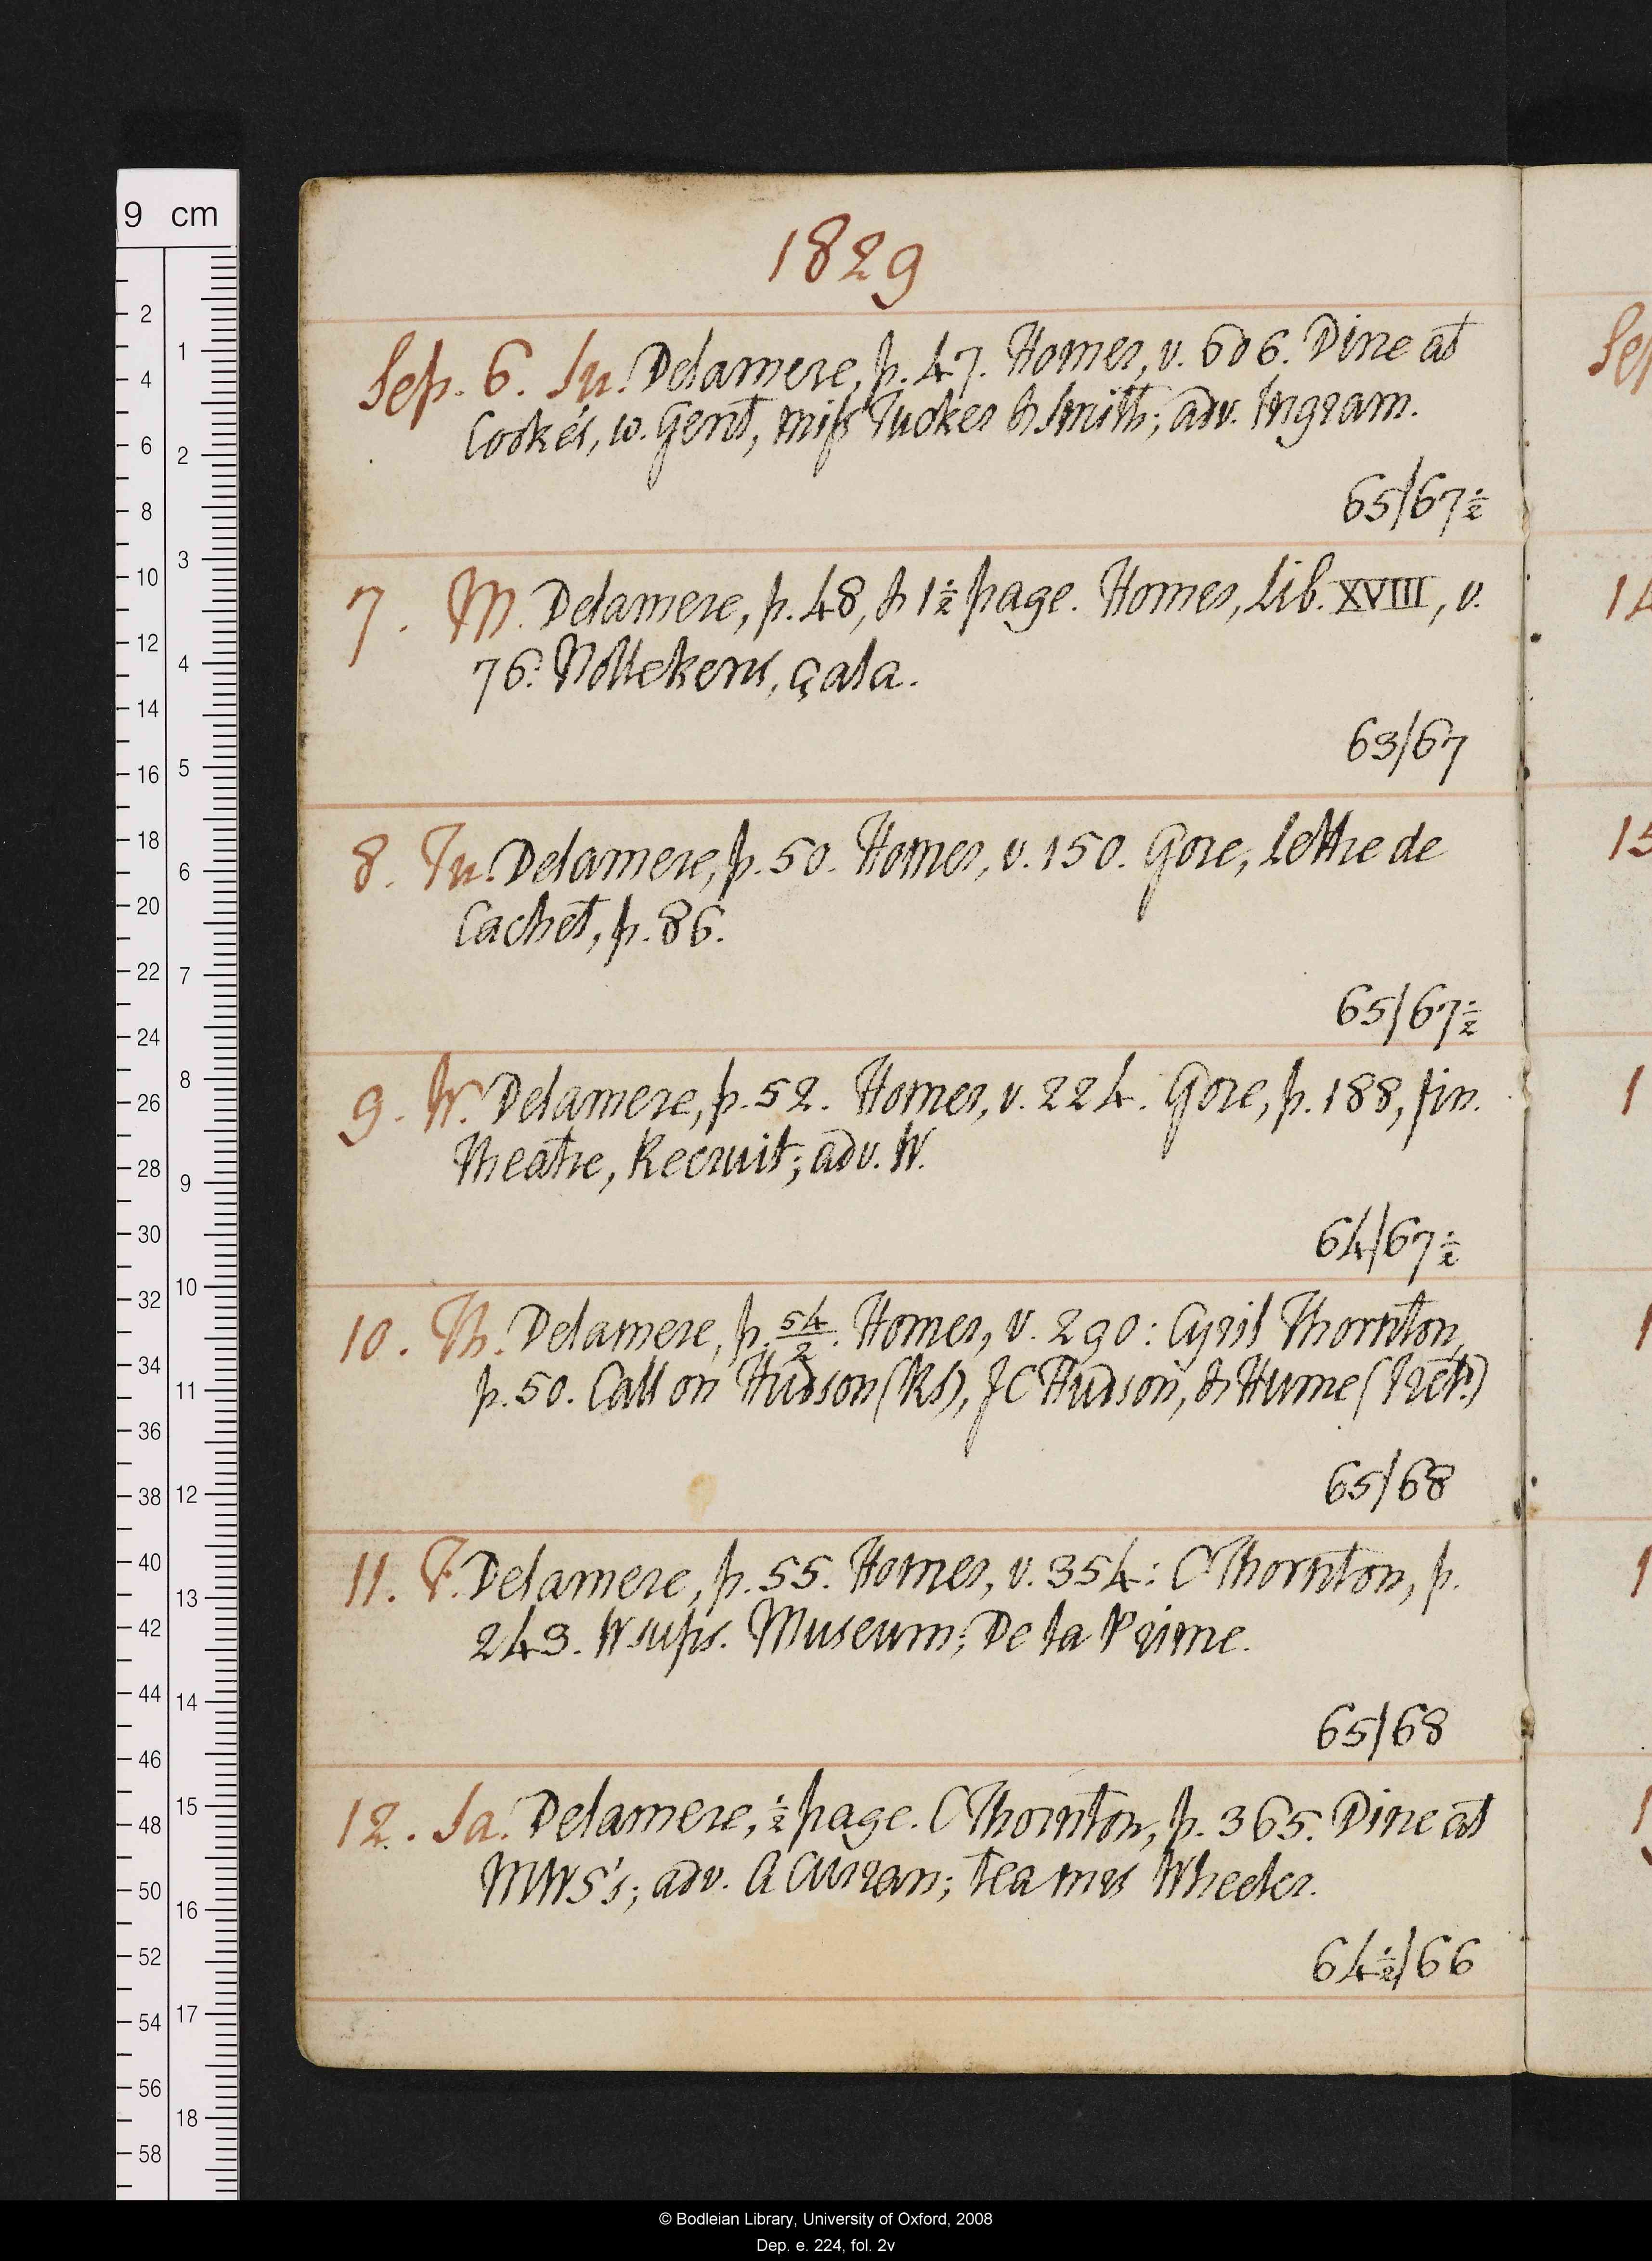 1829
Sep. 6. Su. Delamere, p. 47. Homer, v. 606. Dine at
Cooke's, w. Gent, miss Tucker & Smith; adv. Ingram.
65/67½
7. M. Delamere, p. 48, & 1½ page. Homer, Lib. XVIII, v.
76: Nollekens, çala.
63/67
8. Tu. Delamere, p. 50. Homer, v. 150. Gore, Lettre de
Cachet, p. 86.
65/67½
9. W. Delamere, p. 52. Homer, v. 224. Gore, p. 188, fin.
Theatre, Recruit; adv. W.
64/67½
10. Th. Delamere, p. 54/2. Homer, v. 290: Cyril Thornton,
p. 50. Call on Hudson (RS), J C Hudson, & Hume (Treby)
65/68
11. F. Delamere, p. 55. Homer, v. 354: C Thornton, p.
243. W sups. Museum; De la Prime.
65/68
12. Sa. Delamere, ½ page. C Thornton, p. 365. Dine at
MWS's; adv. A Curran; tea mrs Wheeler.
64½/66
Sep
9 cm
2
4
6
8
10
12
14
16
18
20
22
24
26
28
30
32
34
36
38
40
42
44
46
48
50
52
54
56
58
1
2
3
4
5
6
7
8
9
10
11
12
13
14
15
16
17
18
© Bodleian Library, University of Oxford, 2008
Dep. e. 224, fol. 2v